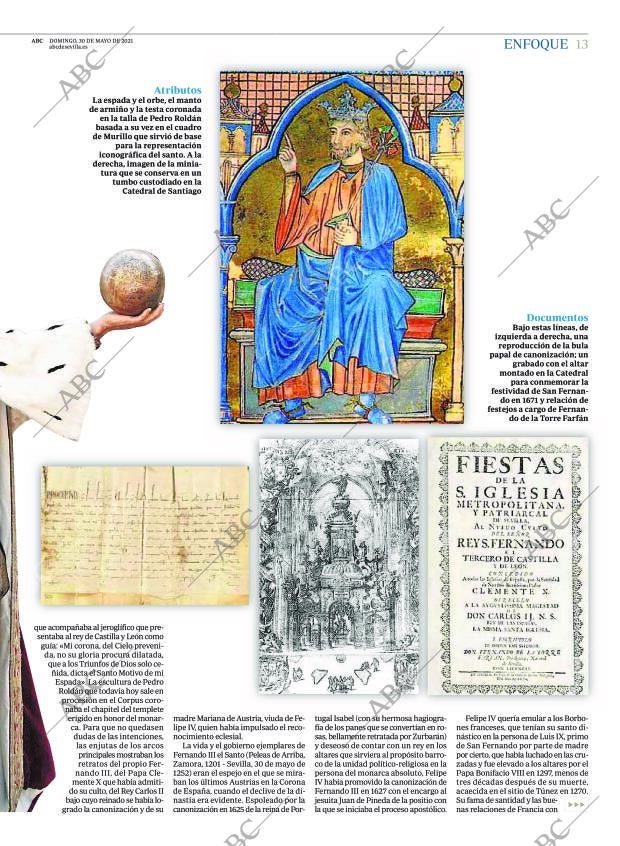 ABC DOMINGO, 30 DE MAYO DE 2021
abcdesevilla.es
ENFOQUE 13
Atributos
La espada y el orbe, el manto
de armiño y la testa coronada
en la talla de Pedro Roldán
basada a su vez en el cuadro
de Murillo que sirvió de base
para la representación
iconográfica del santo. A la
derecha, imagen de la minia-
tura que se conserva en un
tumbo custodiado en la
Catedral de Santiago
Documentos
Bajo estas líneas, de
izquierda a derecha, una
reproducción de la bula
papal de canonización; un
grabado con el altar
montado en la Catedral
para conmemorar la
festividad de San Fernan-
do en 1671 y relación de
festejos a cargo de Fernan-
do de la Torre Farfán
FIESTAS
DE LA
S. IGLESIA
METROPOLITANA,
Y PATRIARCAL
DE SEVILLA,
AL NUEVO CULTO
DEL SEÑOR
REY S. FERNANDO
EL
TERCERO DE CASTILLA
Y DE LEON.
CONCEDIDO
CLEMENTE X.
A LA AUGUSTISSIMA MAGESTAD
DE
DON CARLOS II. N. S.
REY DE LAS ESPAÑAS.
LA MISMA SANTA IGLESIA.
DON FERNANDO DE LA TORRE
que acompañaba al jeroglífico que pre-
sentaba al rey de Castilla y León como
guía: «Mi corona, del Cielo preveni-
da, no su gloria procuró dilatada,
que a los Triunfos de Dios solo ce-
ñida, dicta el Santo Motivo de mi
Espada». La escultura de Pedro
Roldán que todavía hoy sale en
procesión en el Corpus coro-
naba el chapitel del templete
erigido en honor del monar-
ca. Para que no quedasen
dudas de las intenciones,
las enjutas de los arcos
principales mostraban los
retratos del propio Fer-
nando III, del Papa Cle-
mente X que había admiti-
do su culto, del Rey Carlos II
bajo cuyo reinado se había lo-
grado la canonización y de su
madre Mariana de Austria, viuda de Fe-
lipe IV, quien había impulsado el reco-
nocimiento eclesial.
La vida y el gobierno ejemplares de
Fernando III el Santo (Peleas de Arriba,
Zamora, 1201 - Sevilla, 30 de mayo de
1252) eran el espejo en el que se mira-
ban los últimos Austrias en la Corona
de España, cuando el declive de la di-
nastía era evidente. Espoleado por la
canonización en 1625 de la reina de Por-
tugal Isabel (con su hermosa hagiogra-
fía de los panes que se convertían en ro-
sas, bellamente retratada por Zurbarán)
y deseoso de contar con un rey en los
altares que sirviera al propósito barro-
co de la unidad político-religiosa en la
persona del monarca absoluto, Felipe
IV había promovido la canonización de
Fernando III en 1627 con el encargo al
jesuita Juan de Pineda de la positio con
la que se iniciaba el proceso apostólico.
Felipe IV quería emular a los Borbo-
nes franceses, que tenían su santo di-
nástico en la persona de Luis IX, primo
de San Fernando por parte de madre
por cierto, que había luchado en las cru-
zadas y fue elevado a los altares por el
Papa Bonifacio VIII en 1297, menos de
tres décadas después de su muerte,
acaecida en el sitio de Túnez en 1270.
Su fama de santidad y las bue-
nas relaciones de Francia con